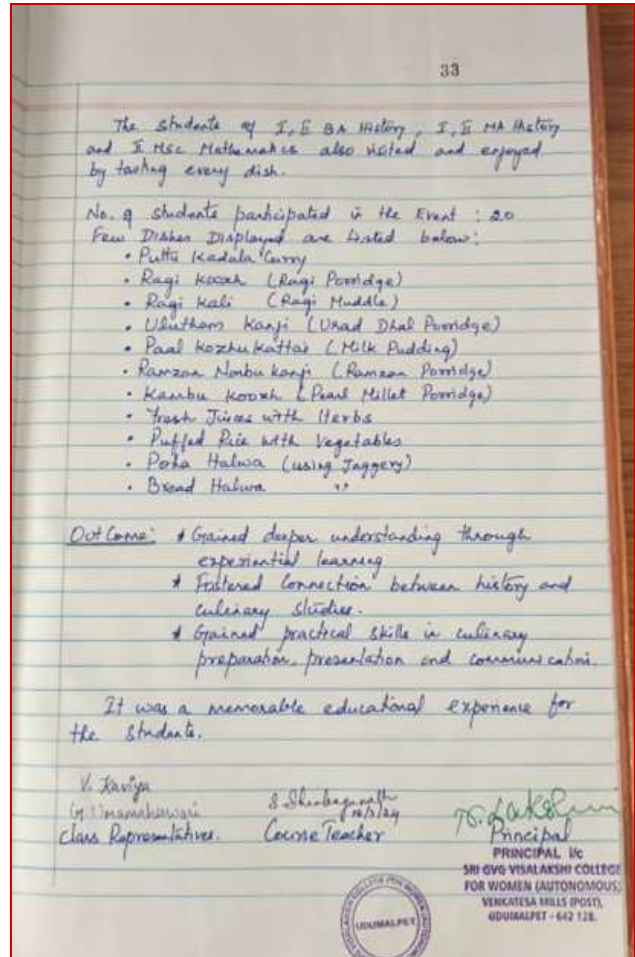 33
The students of I, II BA History, I, II MA History
and II Msc Mathematics also visited and enjoyed
by tasting every dish.
No. of students participated in the Event : 20
Few Dishes Displayed are Listed below:
• Puttu Kadala Curry
• Ragi Koozh (Ragi Porridge)
• Ragi Kali (Ragi Muddle)
• Ulutham Kanji (Urad Dhal Porridge)
• Paal Kozhukattai (Milk Pudding)
• Ramzan Nonbu kanji (Ramzan Porridge)
• Kambu Koozh (Pearl Millet Porridge)
• Fresh Juices with Herbs
• Puffed Rice with Vegetables
• Poha Halwa (using Jaggery)
• Bread Halwa ,,
OutCome: * Gained deeper understanding through
experiential learning
* Fostered Connection between history and
culinary studies.
* Gained practical skills in culinary
preparation, presentation and communication.
It was a memorable educational experience for
the students.
V. Kaviya
G. Umamaheswari
Class Representatives.
Course Teacher
Principal
PRINCIPAL i/c
SRI GVG VISALAKSHI COLLEGE
FOR WOMEN (AUTONOMOUS)
VENKATESA MILLS (POST),
UDUMALPET - 642 128.
UDUMALPET